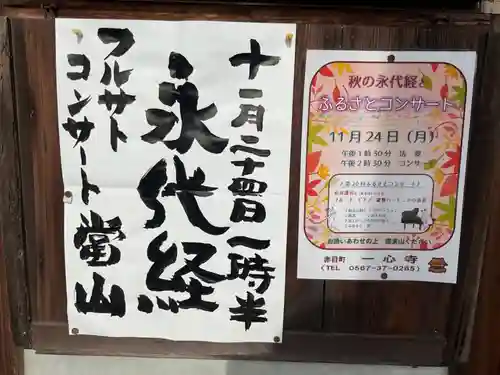 十一月二十四日一時半
永代経
フルサト
コンサート 當山
秋の永代経と
ふるさとコンサート
11月24日（月）
午後1時30分 法要
午後2時30分 コンサート
お誘いあわせの上
赤目町 一心寺
（TEL 0567-37-0285）